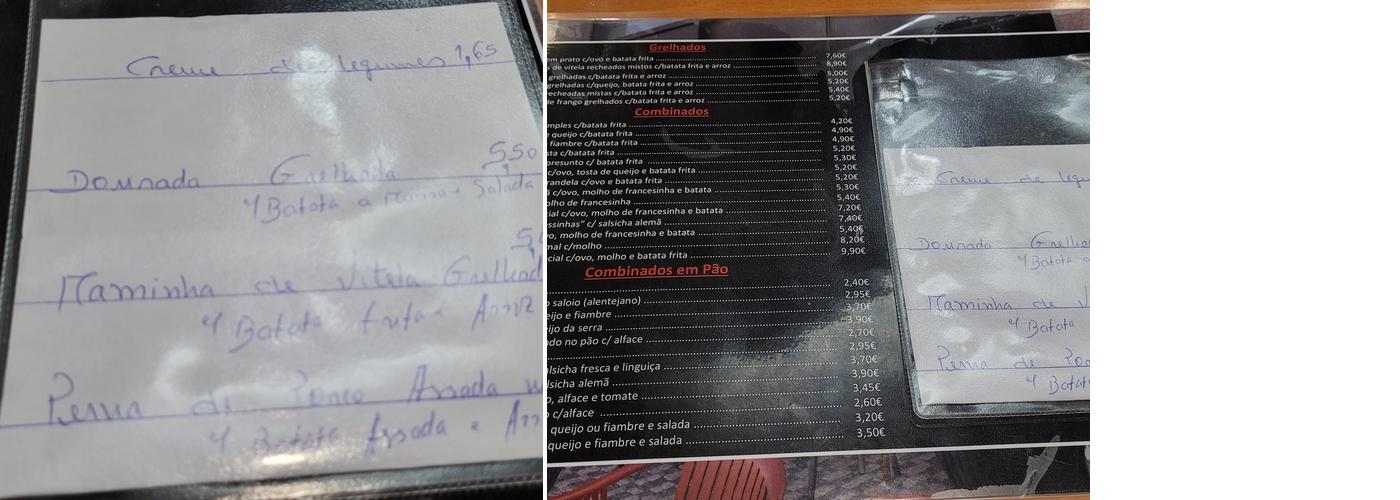 Creme de legumes 1,65
Dourada Grelhada 5,50
c/ Batata a murro e Salada
Maminha de Vitela Grelhad
c/ Batata frita e Arroz
Perna de Porco Assada
c/ Batata Assada e Arr
Grelhados
em prato c/ovo e batata frita 7,60€
s de vitela recheados mistos c/batata frita e arroz 8,90€
grelhadas c/batata frita e arroz 5,00€
grelhadas c/queijo, batata frita e arroz 5,20€
recheadas mistas c/batata frita e arroz 5,40€
de frango grelhados c/batata frita e arroz 5,20€
Combinados
mples c/batata frita 4,20€
queijo c/batata frita 4,90€
fiambre c/batata frita 4,90€
sta c/batata frita 5,20€
presunto c/ batata frita 5,30€
c/ovo, tosta de queijo e batata frita 5,20€
randela c/ovo e batata frita 5,20€
c/ovo, molho de francesinha e batata 5,30€
olho de francesinha 5,40€
cial c/ovo, molho de francesinha e batata 7,20€
ssinhas" c/ salsicha alemã 7,40€
vo, molho de francesinha e batata 5,40€
mal c/molho 8,20€
cial c/ovo, molho e batata frita 9,90€
Combinados em Pão
2,40€
o saloio (alentejano) 2,95€
eijo e fiambre 3,70€
ijo da serra 3,90€
ado no pão c/ alface 2,70€
2,95€
alsicha fresca e linguiça 3,70€
lsicha alemã 3,90€
o, alface e tomate 3,45€
c/alface 2,60€
queijo ou fiambre e salada 3,20€
queijo e fiambre e salada 3,50€
Creme de legu
Dourada Grelha
c/ Batata a
Maminha de V
c/ Batata
Perna de Por
c/ Batat